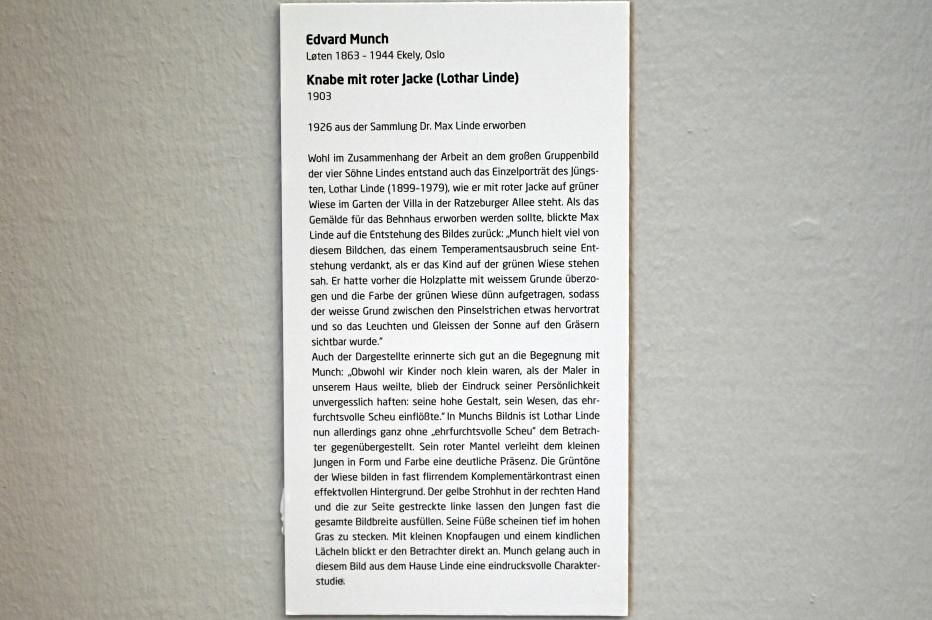 Edvard Munch
Løten 1863 – 1944 Ekely, Oslo
Knabe mit roter Jacke (Lothar Linde)
1903
1926 aus der Sammlung Dr. Max Linde erworben
Wohl im Zusammenhang der Arbeit an dem großen Gruppenbild
der vier Söhne Lindes entstand auch das Einzelporträt des Jüngs-
ten, Lothar Linde (1899–1979), wie er mit roter Jacke auf grüner
Wiese im Garten der Villa in der Ratzeburger Allee steht. Als das
Gemälde für das Behnhaus erworben werden sollte, blickte Max
Linde auf die Entstehung des Bildes zurück: „Munch hielt viel von
diesem Bildchen, das einem Temperamentsausbruch seine Ent-
stehung verdankt, als er das Kind auf der grünen Wiese stehen
sah. Er hatte vorher die Holzplatte mit weissem Grunde überzo-
gen und die Farbe der grünen Wiese dünn aufgetragen, sodass
der weisse Grund zwischen den Pinselstrichen etwas hervortrat
und so das Leuchten und Gleissen der Sonne auf den Gräsern
sichtbar wurde.“
Auch der Dargestellte erinnerte sich gut an die Begegnung mit
Munch: „Obwohl wir Kinder noch klein waren, als der Maler in
unserem Haus weilte, blieb der Eindruck seiner Persönlichkeit
unvergesslich haften: seine hohe Gestalt, sein Wesen, das ehr-
furchtsvolle Scheu einflößte.“ In Munchs Bildnis ist Lothar Linde
nun allerdings ganz ohne „ehrfurchtsvolle Scheu“ dem Betrach-
ter gegenübergestellt. Sein roter Mantel verleiht dem kleinen
Jungen in Form und Farbe eine deutliche Präsenz. Die Grüntöne
der Wiese bilden in fast flirrendem Komplementärkontrast einen
effektvollen Hintergrund. Der gelbe Strohhut in der rechten Hand
und die zur Seite gestreckte linke lassen den Jungen fast die
gesamte Bildbreite ausfüllen. Seine Füße scheinen tief im hohen
Gras zu stecken. Mit kleinen Knopfaugen und einem kindlichen
Lächeln blickt er den Betrachter direkt an. Munch gelang auch in
diesem Bild aus dem Hause Linde eine eindrucksvolle Charakter-
studie.